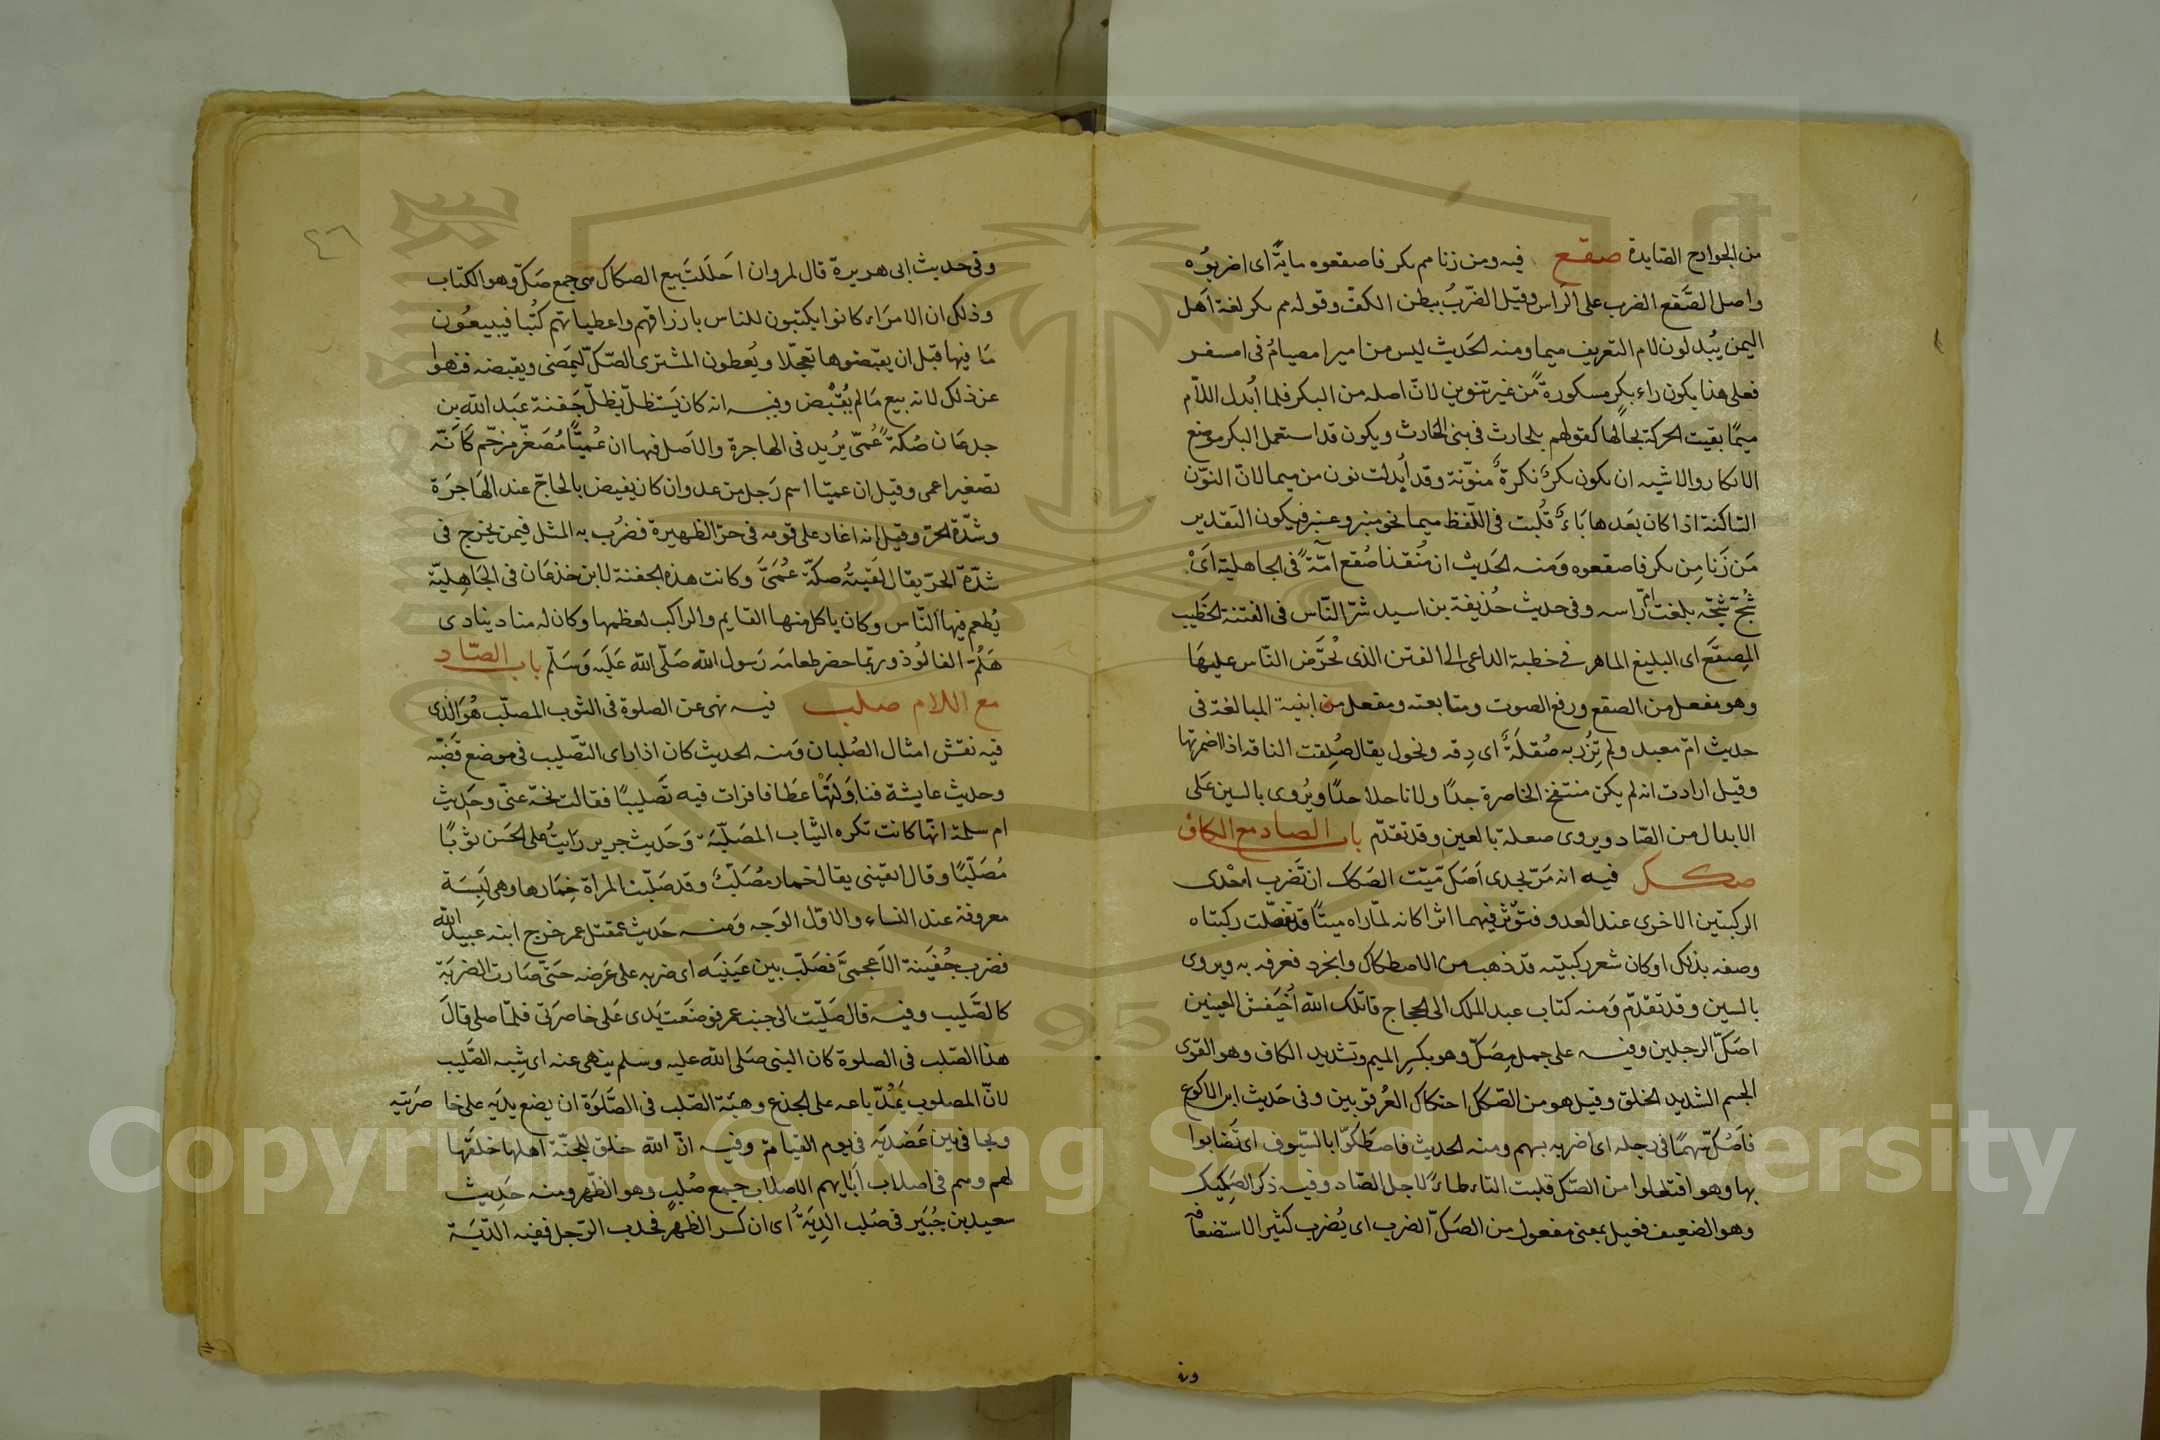 من الجوارح الصّايدة صقع فيه ومن زنا مم بكر فاصقعوه مايةً اى اضربوه
واصل الصَّقع الضرب على الرّاس وقيل الضّربُ ببطن الكفّ وقوله مم بكر لغة اهل
اليمن يُبدلون لام التعريف ميما ومنه الحَديث ليس من امبر امصيامُ فى امسفر
فعلى هذا يكون راء بكر مسكورةً من غير تنوين لانّ اصله من البكر فلما اُبدل اللّام
ميمًا بقيت الحركة بحالها كقولهم بلحارث فى بنى الحارث ويكون قد استعمل البكر موضع
الابكار والاشبه ان يكون بكرٌ نكرةً منوّنة وقد اُبدلت نون من ميما لانّ النّون
السّاكنة اذا كان بَعدها بَاءٌ قُلبت فى اللّفظ ميما نحو منبر وعنبر فيكون التقدير
مَن زَنا مِن بكر فاصقعوه وَمنه الحَديث ان مُنقذا صُقع آمّةً فى الجاهلية اىْ
شُجّ شجّة بلغت اُمّ رّاسه وفى حديث حُذيفة بن اسيد شرّ النّاس فى الفتنة الخَطيب
المِصقَع اى البليغ الماهر فى خطبة الداعى الى الفتن الذى يُحرَّض النّاس عليهَا
وهو مفعل من الصقع ورفع الصوت ومتابعته ومفعل من ابنية المبالغة فى
حديث امّ معبد ولم تُزْرِ به صُقلَةٌ اى دِقة ونحول يقال صُقِلت الناقة اذا اضمرتها
وقيل ارادت انه لم يكن منتفخ الخاصرة جدًا ولا ناحلا جدًا ويُروى بالسين عَلى
الابدال من الصّاد ويروى صعلة بالعين وقد تقدّم باب الصاد مع الكاف
صكك فيه انه مَرّ بجدى اَصَكّ ميّت الصَكك ان تَضرب احْدى
الركبتين الاخرى عند العدو فتوْثر فيهما اثرا كانه لمّا راه ميتًا قد تقصّلت ركبتاه
وصفه بذلك او كان شعر ركبتيه قد ذهب من الاصطكاك وانجرد فعرفه به ويروى
بالسين وقد تقدّم وَمنه كتاب عبد الملك الى الحجاج قاتلك الله اُخَيفش العينين
اصَكّ الرجلين وفيه على جمل مِصَكّ وهو بكسرِ الميم وتشديد الكاف وهو القوى
الجسم الشديد الخلق وقيل هو من الصّكك احتكاك العُرقوبين وفى حَديث ابن الاكوع
فاَصُكّ سَهمًا فى رجله اى اضربه بسهم ومنه الحديث فاصطَكّوا بالسّيوف اى تَضاربوا
بها وهو افتعلوا من الصّك قلبت التاء طاءً لاجل الصّاد وفيه ذكر الصَّكِيك
وهو الضعيف فعيل بمعنى مفعول من الصَكّ الضرب اى يُضرب كثيرا لاستضعافه
وفى
٤٦
وفى حديث ابى هريرة قال لمروان احَللتَ بَيع الصكاك هى جمع صَكّ وهو الكتاب
وذلك ان الامرَاء كانوا يكتبون للناس بارزاقهم واعطياتهم كتُبا فيبيعُون
مَا فيها قبل ان يقبضوها تعجّلا ويُعطون المشترى الصّكّ ليمَضى ويقبضه فنهوا
عن ذلك لانه بيع مَا لم يُقبْض وفيه انه كان يَستظلّ بظلّ جَفنة عَبد اللّه بن
جدعَان صَكةً عُمىّ يُريد فى الهاجرة والاَصل فيها ان عُميًّا مُصَغّر مرخّم كاَنّه
تصغير اعمى وقيل ان عميّا اسم رَجل من عدوان كان يفيض بالحاجّ عند الهَاجرَة
وشدّة الحرّ وقيل انه اغار على قومه فى حرّ الظهيرة فضُرب به المثل فيمن يخرج فى
شدّة الحرّ يقال لَقيتُه صكّة عُمَىّ وكانت هذه الجفنة لابن جذعَان فى الجَاهِليّة
يُطعم فيها النّاس وكان ياكل منها القايم والراكب لعظمها وكان له مناد ينادى
هَلُمّ الفالُوذ وربّما حضر طعامَه رَسول اللّه صَلّى اللّه عَلَيه وَسَلّم باب الصّاد
مع اللام صلب فيه نهى عن الصلوة فى الثوب المصلّب هُوَ الذى
فيه نقش امثال الصُلبان وَمنه الحديث كان اذا راى التّصليب فى موضع قَضَبّه
وحديث عايشة فناوَلتُهْا عَطافا فرات فيه تَصليبًا فقالت نحّه عنّى وحَديث
ام سلمة انّها كانت تكره الثياب المصَلّبة وَحَديث جرير رَايتُ على الحَسن ثوبًا
مُصَلّبًا وقال القتيبى يقال خمار مُصَلّبٌ وقد صَلّبت المراة خِمَارها وهى لِبسَة
معروفة عند النساء والاوّل الوَجه وَمنه حَديث مقتل عمر خرج ابنه عبيد اللّه
فضرب جُفَينة الاَعجمىَّ فصَلّب بين عَينيَه اى ضربه على عَرضه حَتّى صَارت الضربَة
كالصَّليب وفيه قال صَلّيت الى جنب عمر فوضَعت يَدى عَلى خاصرتى فلمّا صلى قالَ
هذا الصّلب فى الصلوة كان النبى صَلى اللّه عليه وسلم ينهى عنه اى شِبه الصَّليب
لانّ المصلوب يَمُدّ باعه على الجذع وهيئة الصّلب فى الصّلَوَة ان يضع يديَه على خاصرتيه
ويجافى بين عَضُديَه فى يوم القيامة وفيه انّ اللّه خلق للجنّة اهلها خلقَها
لهم وهم فى اصلاب اَبايهم الاصلاب جمع صُلبٍ وهو الظّهر ومنه حَديث
سعيد بن جُبَير فى صُلب الدِيَةُ اى ان كسر الظهر فحدب الرّجل ففيه الدّيَة
Copyright © King Saud University